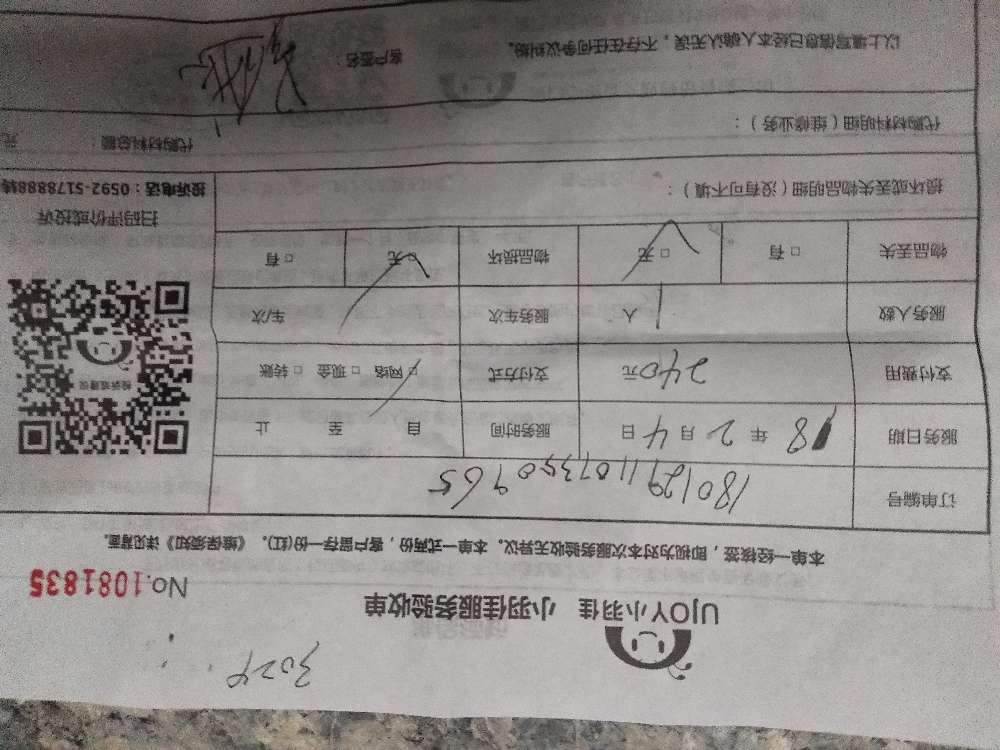 3024
UJOY小羽佳 小羽佳服务验收单
No.1081835
本单一经核签，即视为对本次服务验收无异议。本单一式两份，客户留存一份(红)。《维保须知》详见背面。
订单编号 1801291107350965
服务日期 18 年 2 月 4 日 服务时间 自 至 止
支付费用 240元 支付方式 □ 网络 □ 现金 □ 转账
服务人数 1 人 服务车次 车/次
物品丢失 □ 有 □ 无 物品损坏 □ 无 □ 有
投诉或建议
扫码评价或投诉
投诉电话：0592-5178888转
损坏或丢失物品明细（没有可不填）：
代购材料明细（维修业务）： 代购材料总额： 元
以上填写信息已经本人确认无误，不存在任何争议纠纷。 客户签名：